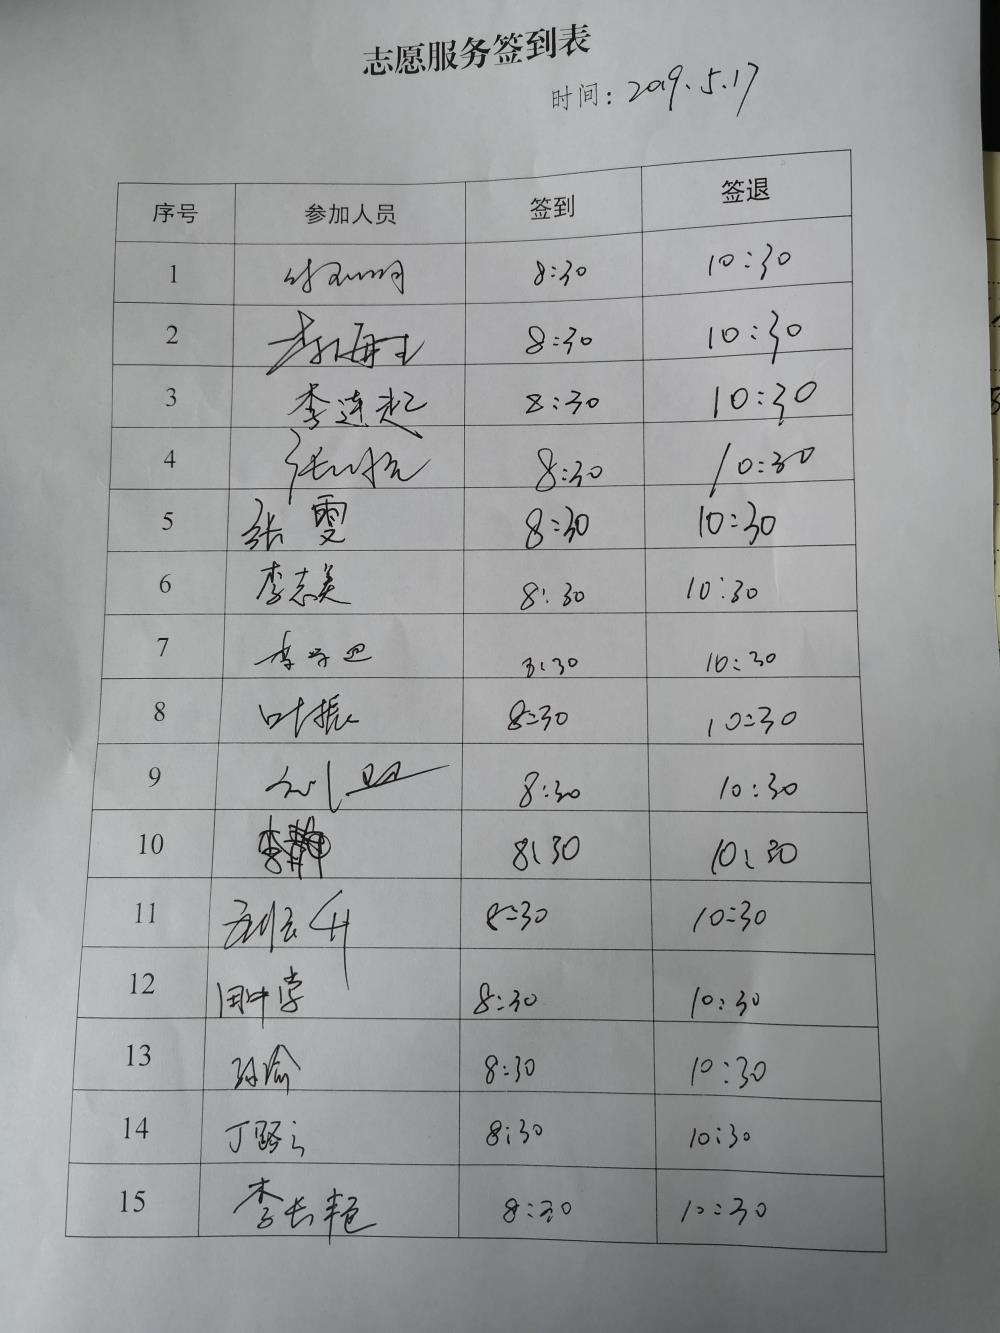 志愿服务签到表
时间：2019.5.17
序号 参加人员 签到 签退
1 8:30 10:30
2 李海生 8:30 10:30
3 李连起 8:30 10:30
4 8:30 10:30
5 张雯 8:30 10:30
6 李志美 8:30 10:30
7 8:30 10:30
8 叶振 8:30 10:30
9 刘盟 8:30 10:30
10 李静 8:30 10:30
11 8:30 10:30
12 田中学 8:30 10:30
13 孙瑜 8:30 10:30
14 8:30 10:30
15 李长艳 8:30 10:30